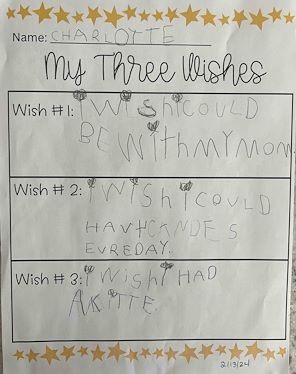 Name: CHARLOTTE
My Three Wishes
Wish #1: I WiShI COULD
BE WithMYMOM
Wish # 2: I WISh I COULD
HAVHCANDES
EVREDAY.
Wish # 3: I WiShI HAD
AKITTE.
2/13/24